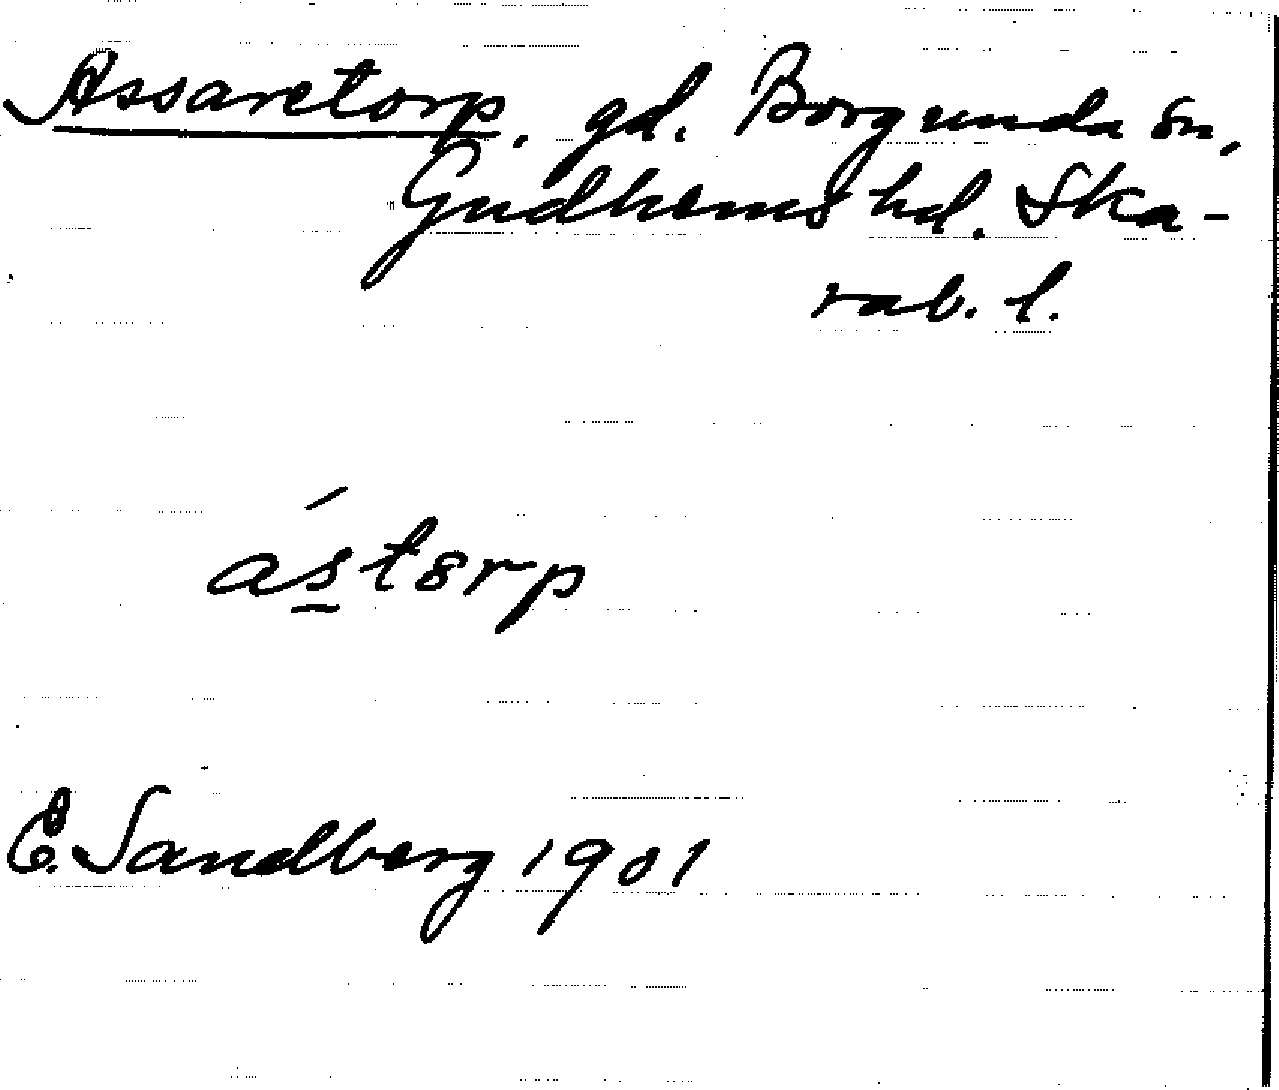 Assaretorp, gd. Borgunda sn,
Gudhems hd. Ska-
rab. l.
ás̲tørp
E. Sandberg 1901